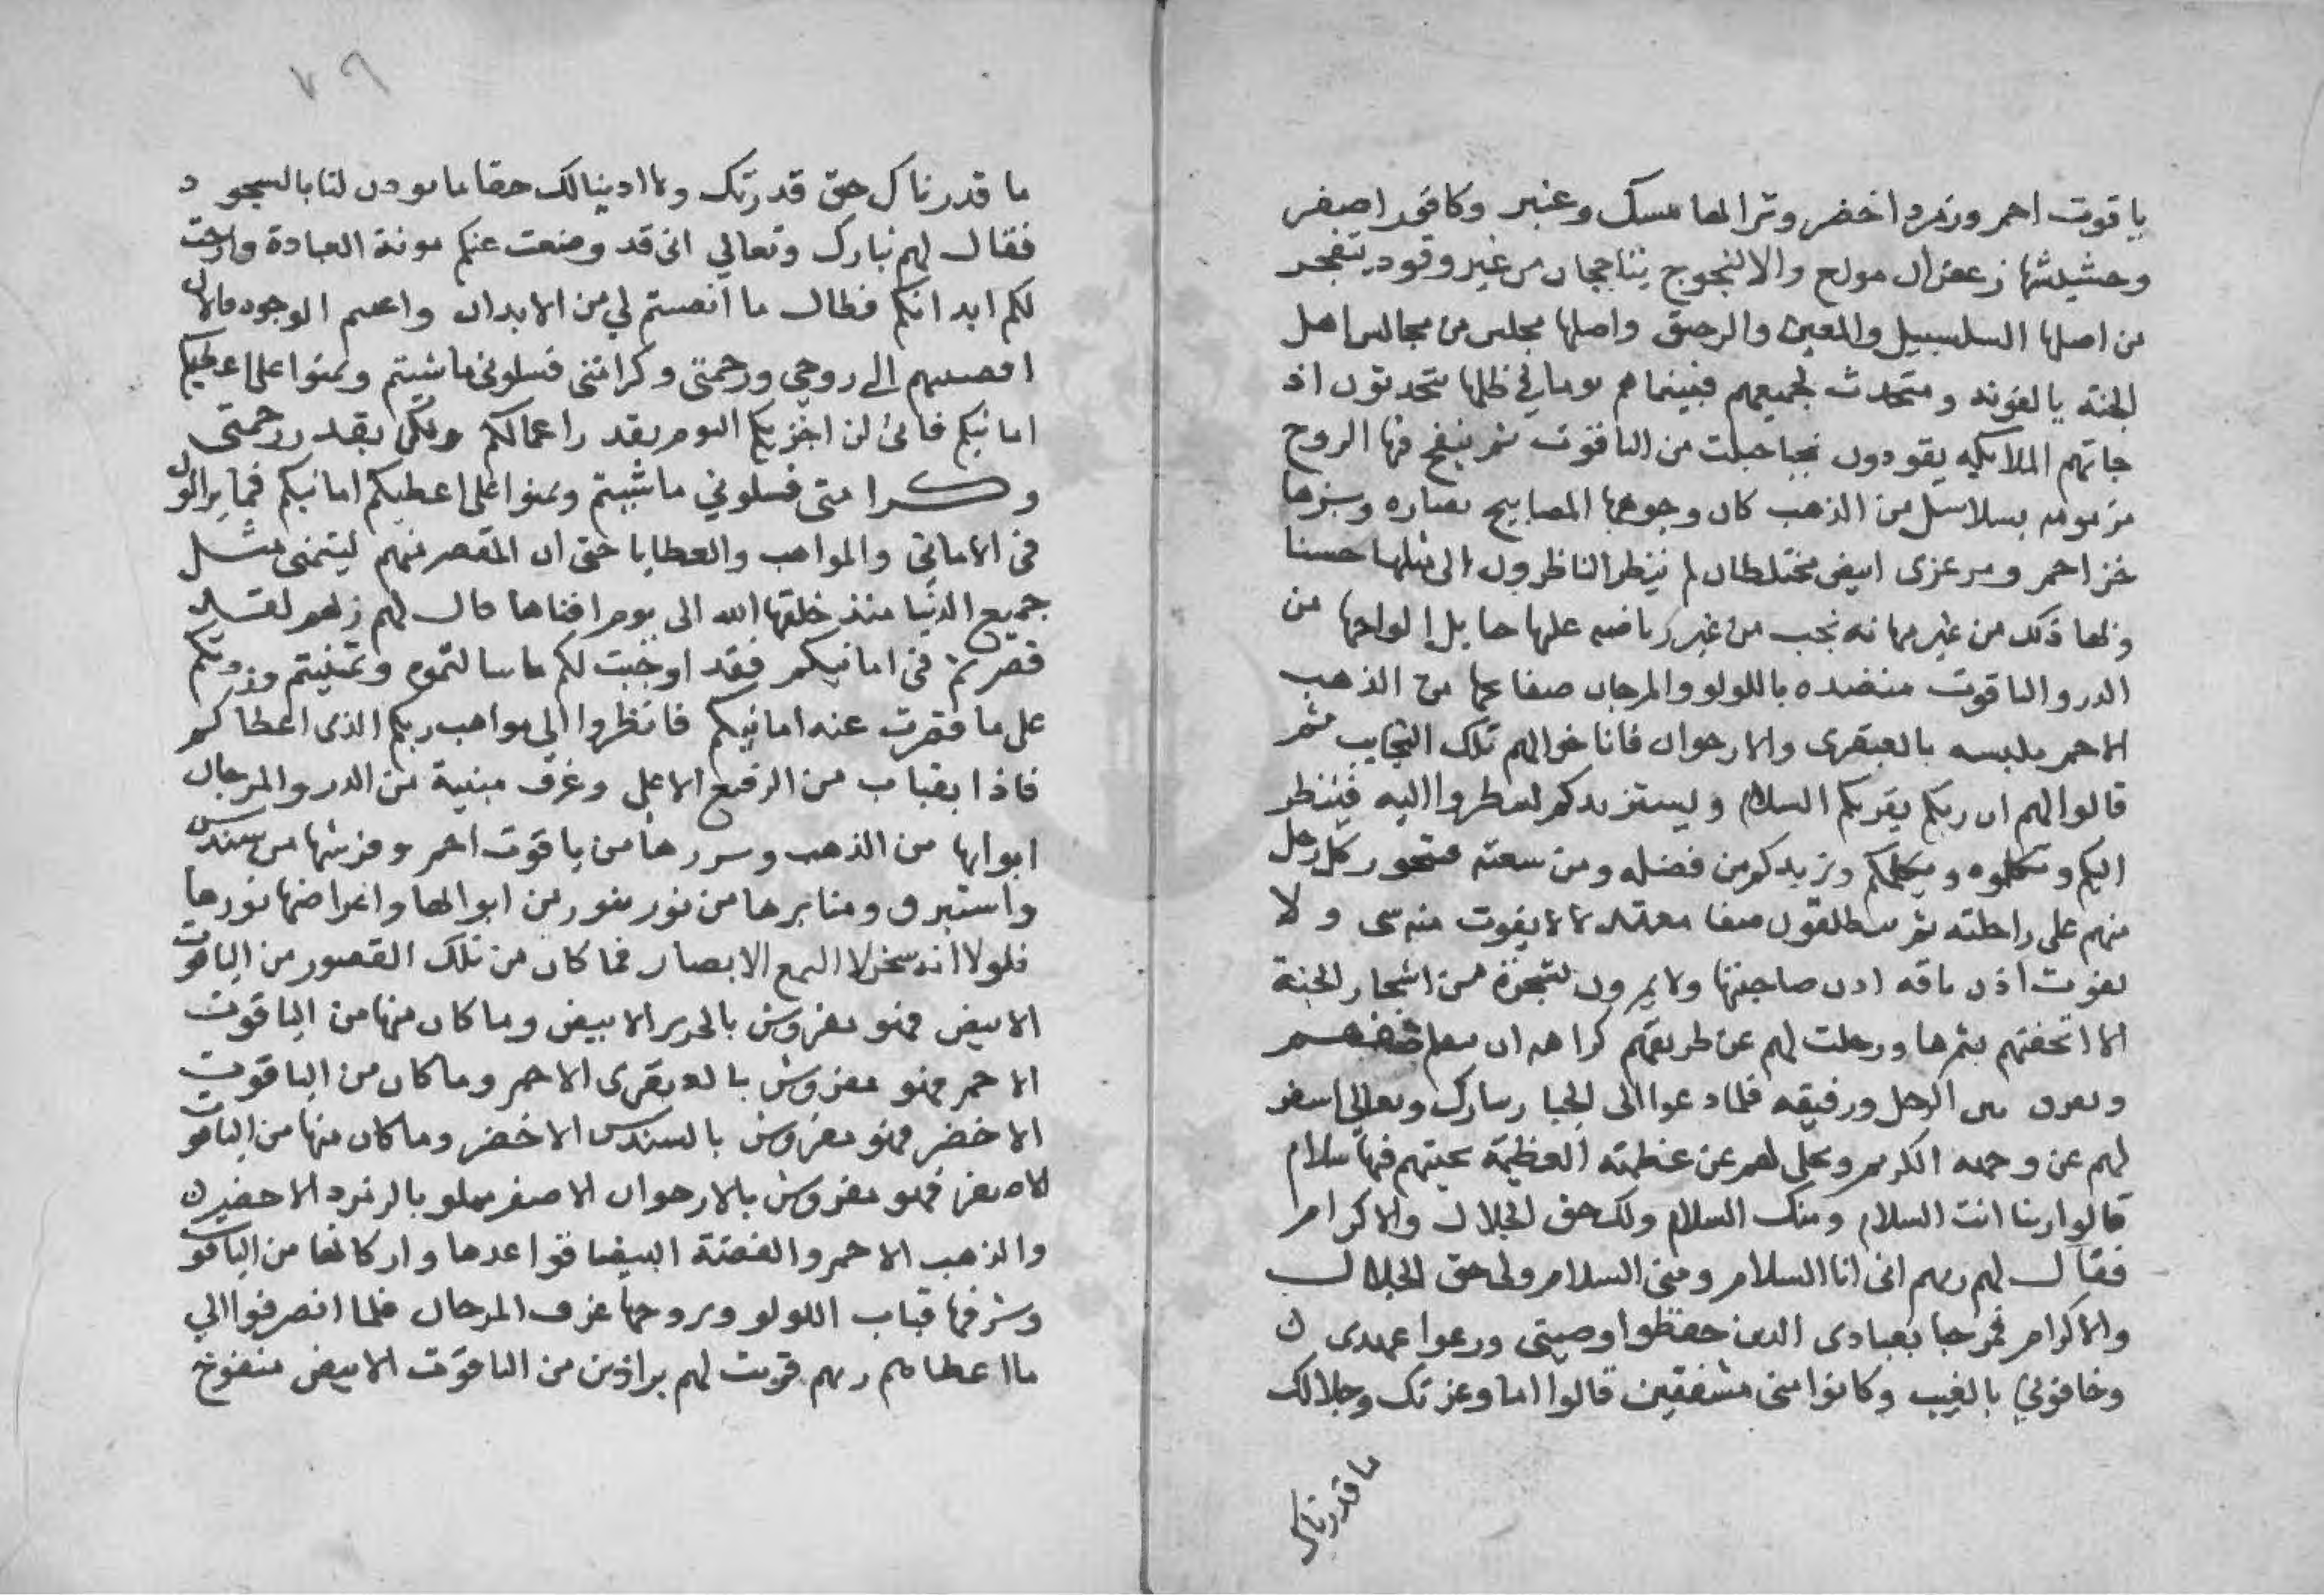 ياقوت احمر وزمرد اخضر وترابها مسك وعنبر وكافور اصفر
وحشيشها زعفران مولع والالنجوج يتاججان من غير وقود يتفجر
من اصلها السلسبيل والمعين والرحيق واصلها مجلس من مجالس اهل
الجنه يالفونه ومتحدث لجميعهم فبينما هم يوما في ظلها يتحدثون اذ
جاتهم الملايكه يقودون نجبا جبلت من الياقوت ثم ينفخ فيها الروح
مزمومه بسلاسل من الذهب كان وجوهها المصابيح نضاره وبزها
خز احمر ومرعزى ابيض مختلطان لم ينظر الناظرون الى مثلها حسنا
وبها ذلك من غير مهانه نجب من غير رياضه عليها حايل الواحها من
الدر والياقوت منضده باللولو والمرجان صفاعها من الذهب
الاحمر ملبسه بالعبقرى والارجوان فاناخوا لهم تلك النجايب ثم
قالوا لهم ان ربكم يقريكم السلام ويستزيدكم لتنظروا اليه فينظر
اليكم وتكلموه ويكلمكم ويزيدكم من فضله ومن سعته فتحور كل رجل
منهم على راحلته ثم ينطلقون صفا معتدلا لا يفوت منه شى ولا
تفوت اذن ناقه اذن صاحبتها ولا يمرون بشجرة من اشجار الجنة
الا اتحفتهم بثمرها ورحلت لهم عن طريقهم كراهه ان صفهم
وتفرق بين الرجل ورفيقه فلما دعوا الى الجبار تبارك وتعالى اسفر
لهم عن وجهه الكريم وتجلى لهم عن عظمته العظيمة تحيتهم فيها سلام
قالوا ربنا انت السلام ومنك السلام ولك حق الجلال والاكرام
فقال لهم ربهم انى انا السلام ومنى السلام ولى حق الجلال
والاكرام فمرحبا بعبادى الذين حفظوا وصيتى ورعوا عهدى
وخافونى بالغيب وكانوا منى مشفقين قالوا اما وعزتك وجلالك
ما قدرناك
٧٩
ما قدرناك حق قدرتك وما ادينا لك حقا ما بودن لنا بالسجود
فقال لهم تبارك وتعالي انى قد وضعت عنكم مونة العبادة وارحت
لكم ابدانكم فطال ما انصبتم لي من الابدان واعنتم الوجوه فالان
افضيتم الى روحي ورحمتى وكرامتى فسلونى ماشيتم وتمنوا على اعطيكم
امانيكم فانى لن اجزيكم اليوم بقدر اعمالكم ولكن بقدر رحمتى
وكرامتى فسلوني ماشيتم وتمنوا على اعطيكم امانيكم فما يزالون
فى الامانى والمواهب والعطايا حتى ان المقصر منهم ليتمنى مثل
جميع الدنيا منذ خلقها الله الى يوم افناها قال لهم ربهم لقد
قصرتم فى امانيكم فقد اوجبت لكم ما سالتموه وتمنيتم وزدتكم
على ما قصرت عنه امانيكم فانظروا الى مواهب ربكم الذى اعطاكم
فاذا بقباب من الرفيع الاعلى وغرف مبنية من الدر والمرجان
ابوابها من الذهب وسررها من ياقوت احمر وفرشها من سندس
واستبرق ومنابرها من نور يفور من ابوابها واعراضها نورها
فلولا انه سخر لا التمع الابصار فما كان من تلك القصور من الياقوت
الابيض فهو مفروش بالحرير الابيض وما كان منها من الياقوت
الاحمر فهو مفروش بالعبقرى الاحمر وما كان من الياقوت
الاخضر فهو مفروش بالسندس الاخضر وما كان منها من الياقوت
الاصفر فهو مفروش بالارجوان الاصفر مملو بالزمرد الاخضر
والذهب الاحمر والفضة البيضا قواعدها واركانها من الياقوت
وشرفها قباب اللولو وبروجها غرف المرجان فلما انصرفوا الي
ما اعطاهم ربهم قربت لهم براذين من الياقوت الابيض منفوخ